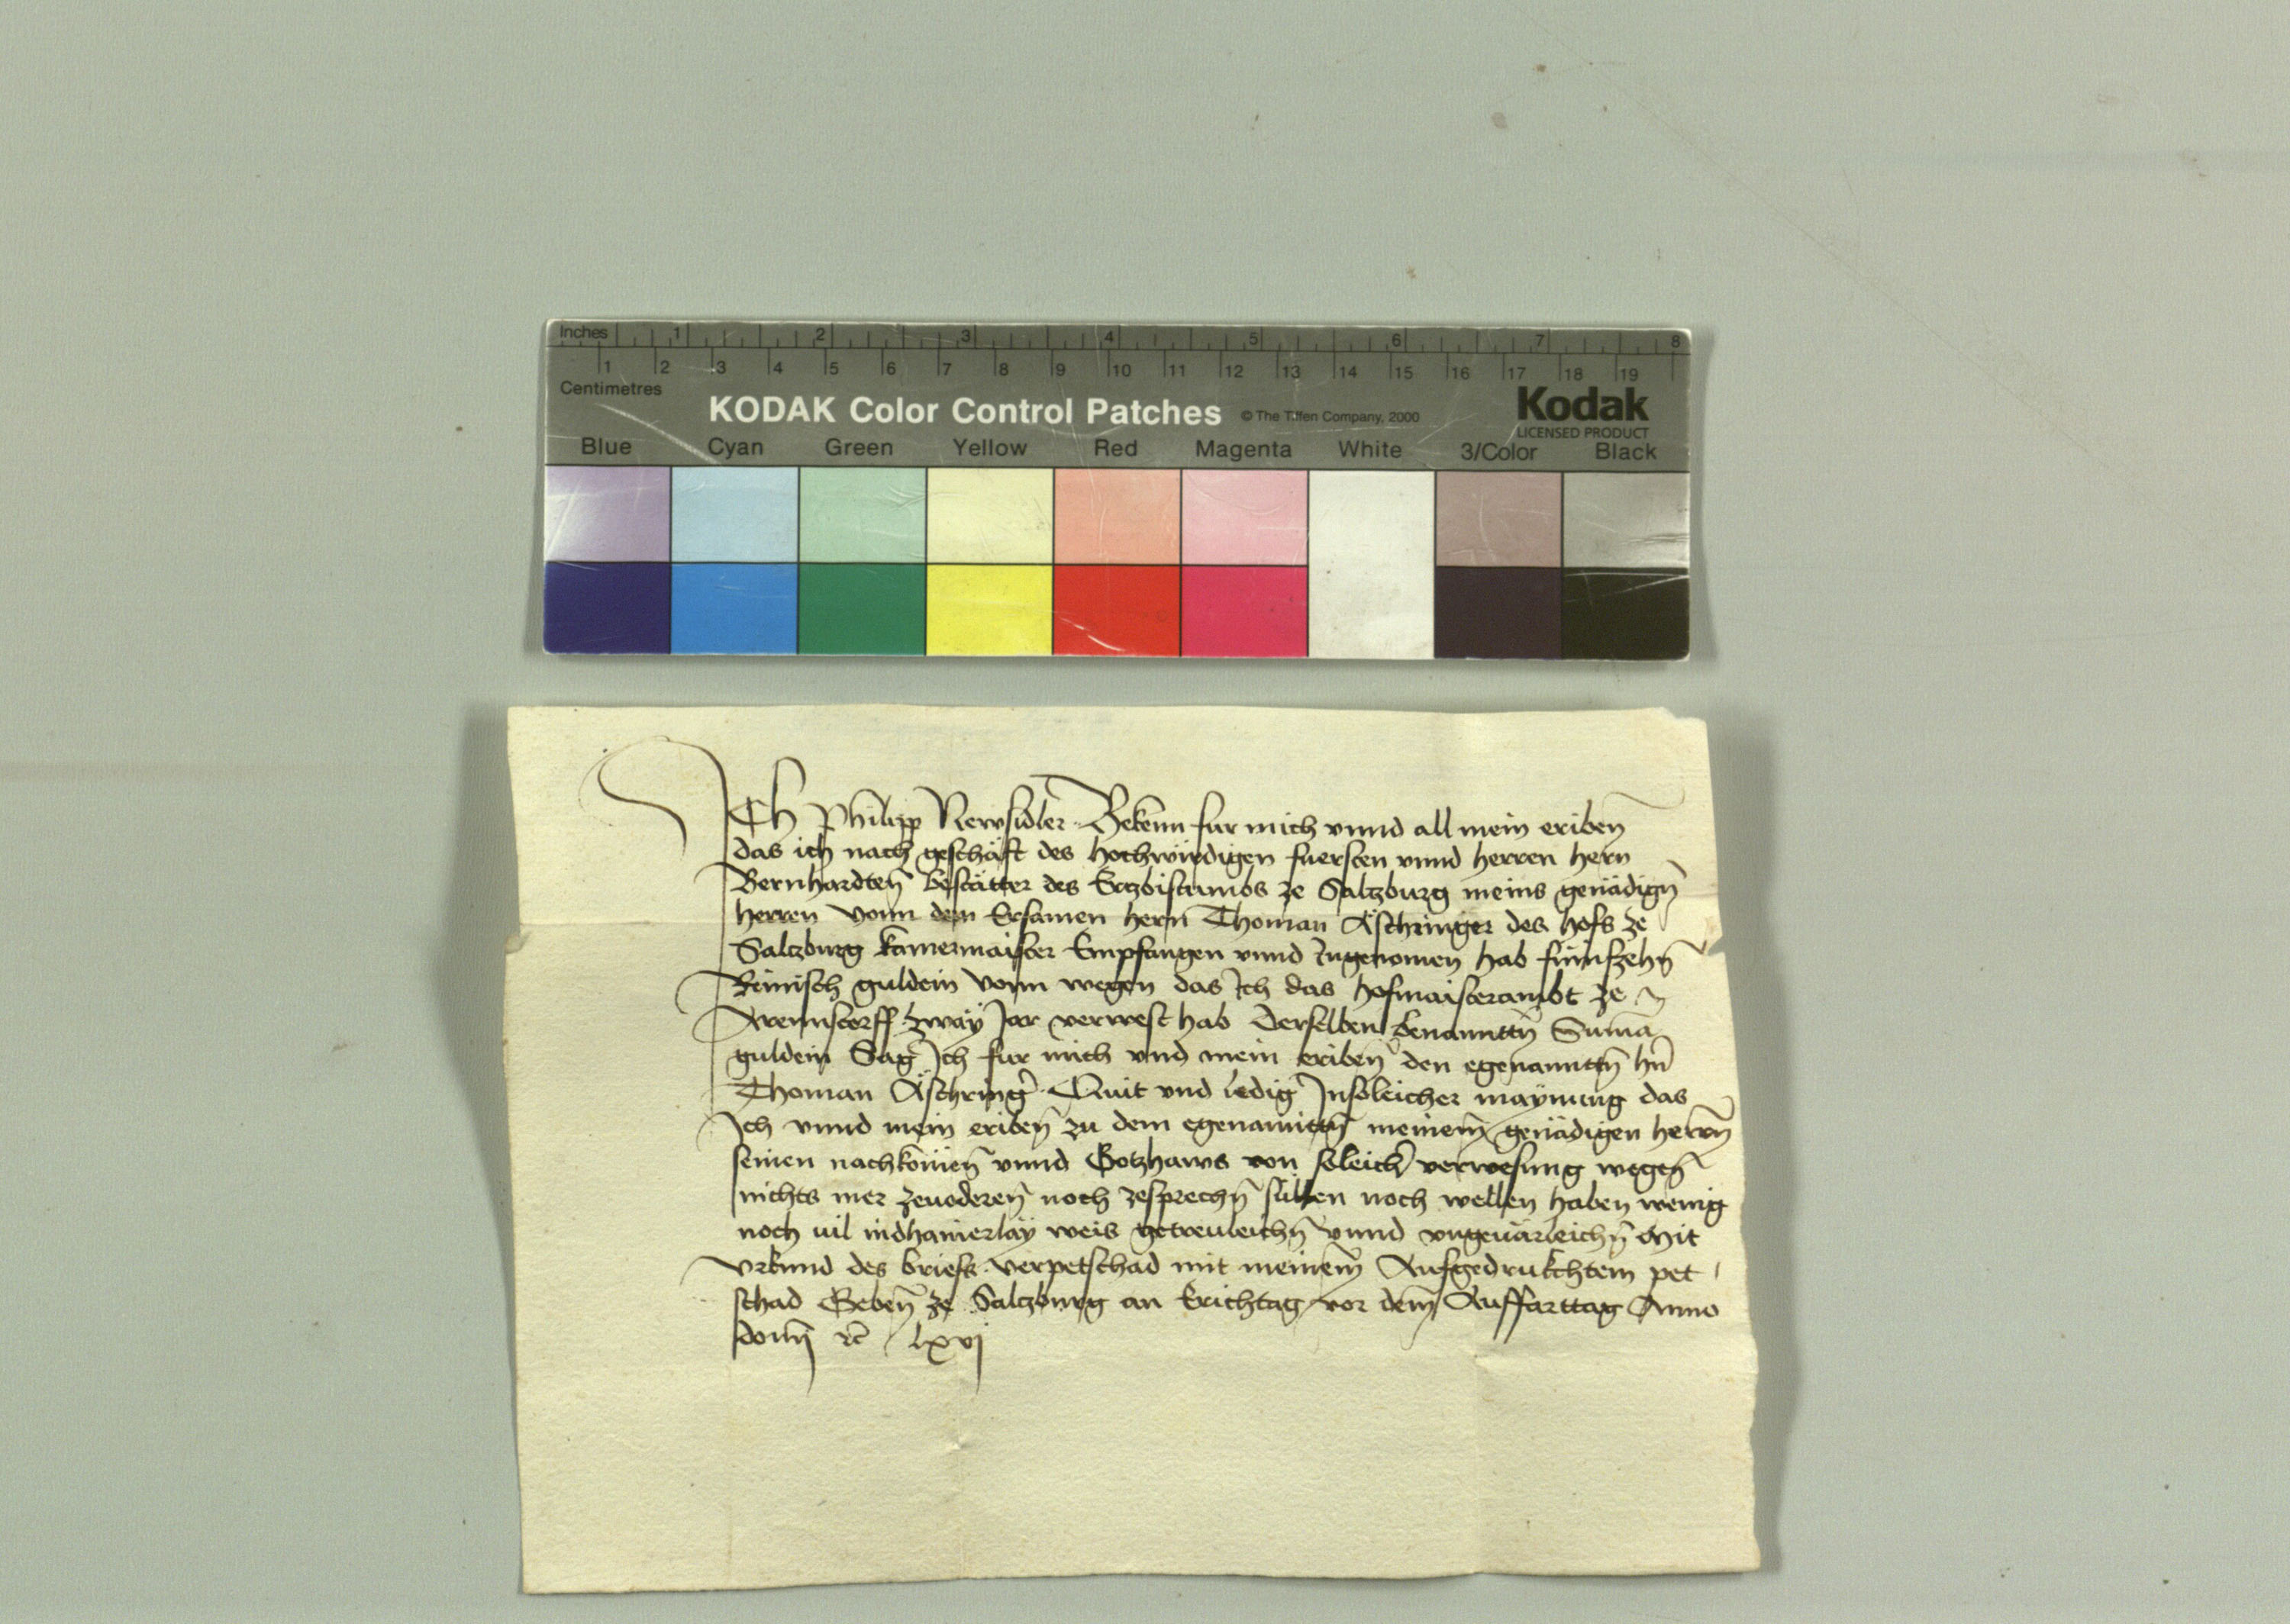 Inches 1 2 3 4 5 6 7 8
1 2 3 4 5 6 7 8 9 10 11 12 13 14 15 16 17 18 19
Centimetres
KODAK Color Control Patches © The Tiffen Company, 2000 Kodak
LICENSED PRODUCT
Blue Cyan Green Yellow Red Magenta White 3/Color Black
Ich Philipp Newsidler Bekenn fur mich vnnd all mein eriben̄
das ich nach geschäft des hochwirdigen fuersten vnnd herren hern
Bernhardten̄ bestätter des Ertzbistumbs ze Saltzburg meins genädign̄
herren vonn dem Ersamen hern Thoman Äschringer des hofs ze
Saltzburg kamermaister Empfangen vnnd Ingenomen hab fünfzehn̄
Reinisch guldein vonn wegen das Ich das hofmaisterambt ze
Arennstorff zway Jar verwest hab Derselben benanntn̄ Suma
guldein Sag Ich fur mich vnd mein eriben̄ den egenanntn̄ hn̄
Thoman Äschrinḡ Quit vnd ledig Insoleicher maynung das
Ich vnnd mein eriben̄ zu dem egenanntn̄ meinem̄ genädigen herrn̄
seinen nachkomen̄ vnnd Gotzhaws von soleich̄ verwesung wegen̄
nichts mer zeuoderen̄ noch zesprechn̄ süllen noch wellen haben wenig
noch uil indhainerlay weis getreuleichn̄ vnnd vngeuärleichn̄ Mit
vrkund des briefs verpetschad mit meinem̄ Aufgedrukchtem pet
schad Geben̄ ze Saltzburg an Erichtag vor dem̄ Auffarttag Anno
domī rc̄ lxvj